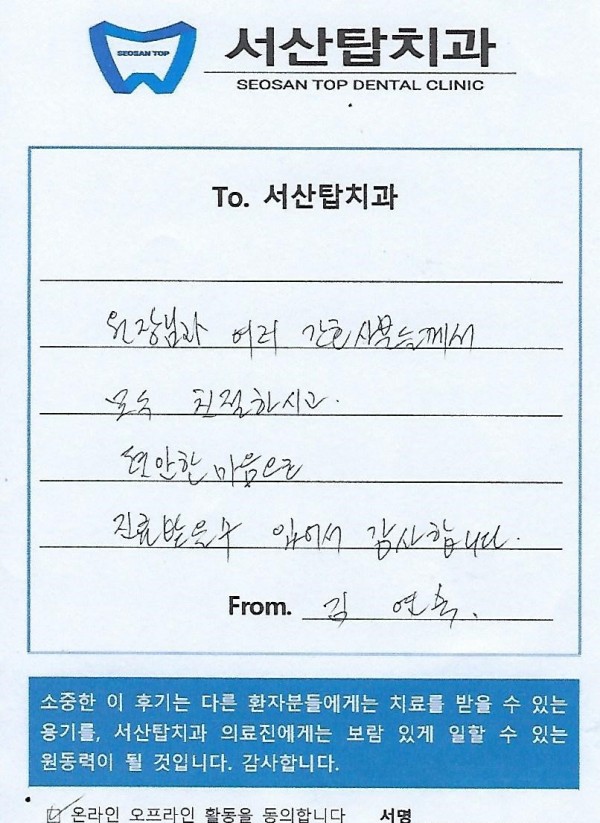 SEOSAN TOP
서산탑치과
SEOSAN TOP DENTAL CLINIC
To. 서산탑치과
원장님과 여러 간호사분들께서
모두 친절하시고.
편안한 마음으로
진료받을수 있어서 감사합니다.
From. 김 연
소중한 이 후기는 다른 환자분들에게는 치료를 받을 수 있는
용기를, 서산탑치과 의료진에게는 보람 있게 일할 수 있는
원동력이 될 것입니다. 감사합니다.
온라인 오프라인 활동을 동의합니다 서명